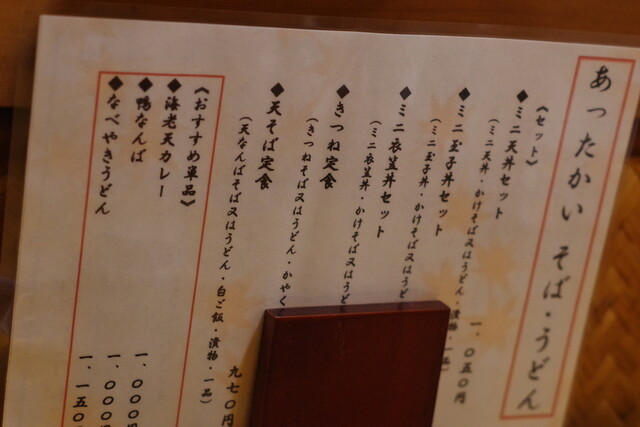 あったかい そば・うどん
《セット》
◆ミニ天丼セット
(ミニ天丼・かけそば又はうどん・漬物・一品)
一、〇五〇円
◆ミニ玉子丼セット
(ミニ玉子丼・かけそば又はうど
◆ミニ衣笠丼セット
(ミニ衣笠丼・かけそば又はうど
◆きつね定食
(きつねそば又はうどん・かやく
◆天そば定食
(天なんばそば又はうどん・白ご飯・漬物・一品)
九七〇円
《おすすめ単品》
◆海老天カレー
一、〇〇〇円
◆鴨なんば
一、〇〇〇
◆なべやきうどん
一、一五〇